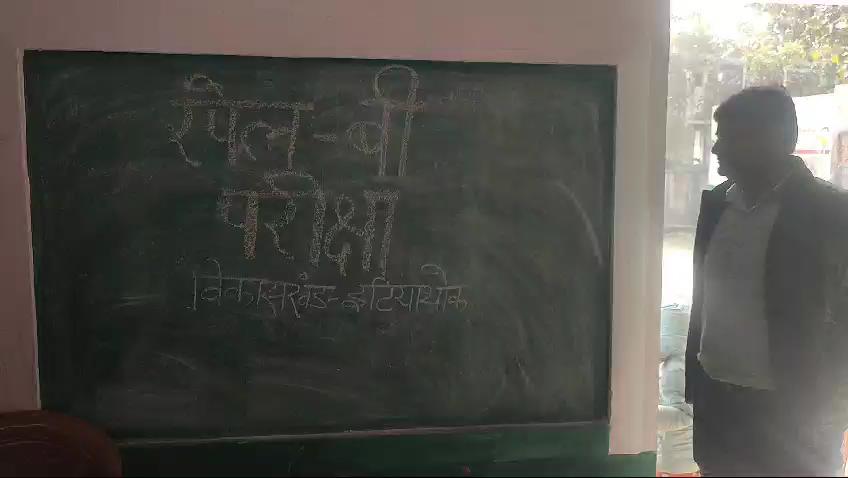 स्पेल-बी
परीक्षा
विकासखंड-इटियाथोक